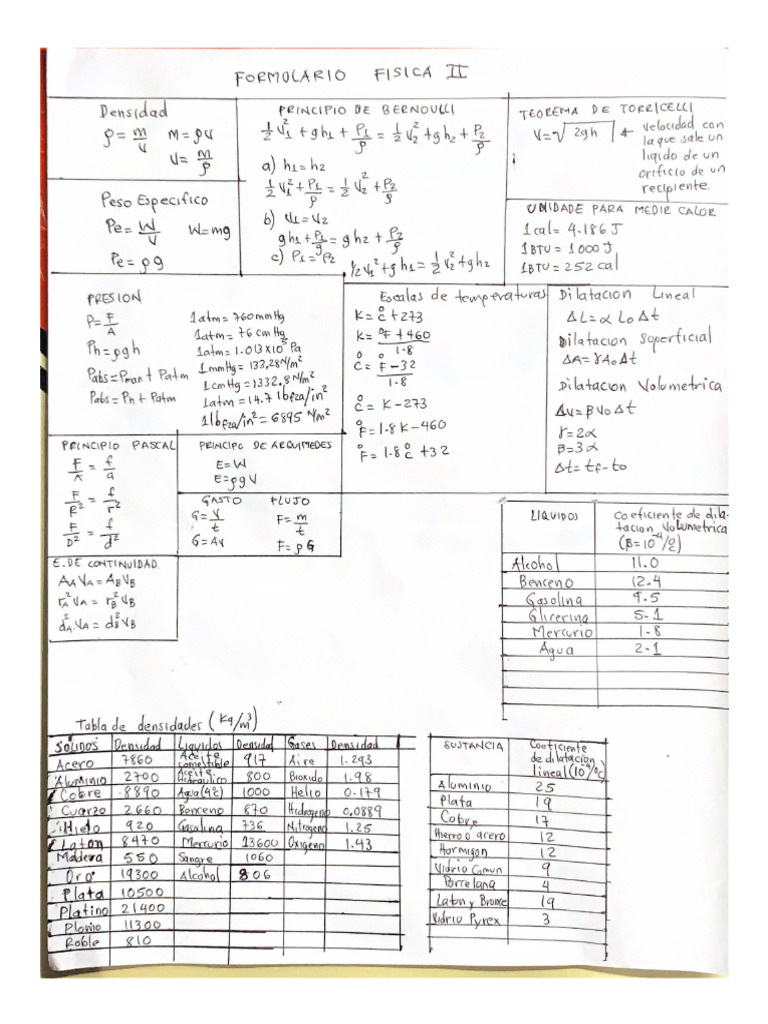 FORMULARIO FISICA II
Densidad
ρ = m/v   m = ρv
v = m/ρ
Peso Especifico
Pe = W/V   W = mg
Pe = ρg
PRINCIPIO DE BERNOULLI
½v₁² + gh₁ + P₁/ρ = ½v₂² + gh₂ + P₂/ρ
a) h₁ = h₂
½v₁² + P₁/ρ = ½v₂² + P₂/ρ
b) v₁ = v₂
gh₁ + P₁/ρ = gh₂ + P₂/ρ
c) P₁ = P₂
1/2 v₁² + gh₁ = ½v₂² + gh₂
TEOREMA DE TORRICELLI
V = √2gh ← velocidad con
la que sale un
liqido de un
orificio de un
recipiente.
UNIDADE PARA MEDIR CALOR
1 cal = 4.186 J
1BTU = 1000 J
1BTU = 252 cal
PRESION
P = F/A
Ph = ρgh
Pabs = Pman + Patm
Pabs = Ph + Patm
1 atm = 760 mmHg
1 atm = 76 cm Hg
1 atm = 1.013x10⁵ Pa
1 mmHg = 133,28 N/m²
1 cmHg = 1332.8 N/m²
1 atm = 14.7 lbfza/in²
1 lbfza/in² = 6895 N/m²
Escalas de temperaturas
K = °C + 273
K = °F + 460 / 1.8
°C = °F - 32 / 1.8
°C = K - 273
°F = 1.8 K - 460
°F = 1.8 °C + 32
Dilatacion Lineal
ΔL = α L₀ Δt
Dilatacion Soperficial
ΔA = γA₀ Δt
Dilatacion Volumetrica
Δv = βV₀ Δt
γ = 2α
β = 3α
Δt = tf - to
PRINCIPIO PASCAL
F/A = f/a
F/R² = f/r²
F/D² = f/d²
PRINCIPO DE ARQUIMEDES
E = W
E = ρgV
GASTO   FLUJO
G = V/t   F = m/t
G = Av   F = ρG
E. DE CONTINUIDAD
A_A V_A = A_B V_B
r²_A V_A = r²_B V_B
d²_A V_A = d²_B V_B
LIQUIDOS   Coeficiente de dila-
tacion Volumetrica
(β = 10⁻⁴/°C)
Alcohol   11.0
Benceno   12.4
Gasolina   9.5
Glicerina   5.1
Mercurio   1.8
Agua   2.1
Tabla de densidades (Kg/m³)
SOLIDOS   Densidad   Liquidos   Densidad   Gases   Densidad
Acero   7860   Aceite comestible   917   Aire   1.293
Aluminio   2700   Aceite hidraulico   800   Bioxido   1.98
Cobre   8890   Agua (4°c)   1000   Helio   0.179
Cuarzo   2660   Benceno   870   Hidrogeno   0,0889
Hielo   920   Gasolina   736   Nitrogeno   1.25
Laton   8470   Mercurio   13600   Oxigeno   1.43
Madera   550   Sangre   1060
Oro   19300   Alcohol   806
Plata   10500
Platino   21400
Plomo   11300
Roble   810
SUSTANCIA   Coeficiente
de dilatacion
lineal
Aluminio   25
Plata   19
Cobre   17
Hierro o acero   12
Hormigon   12
Vidrio Comun   9
Porcelana   4
Laton y Bronce   19
Vidrio Pyrex   3